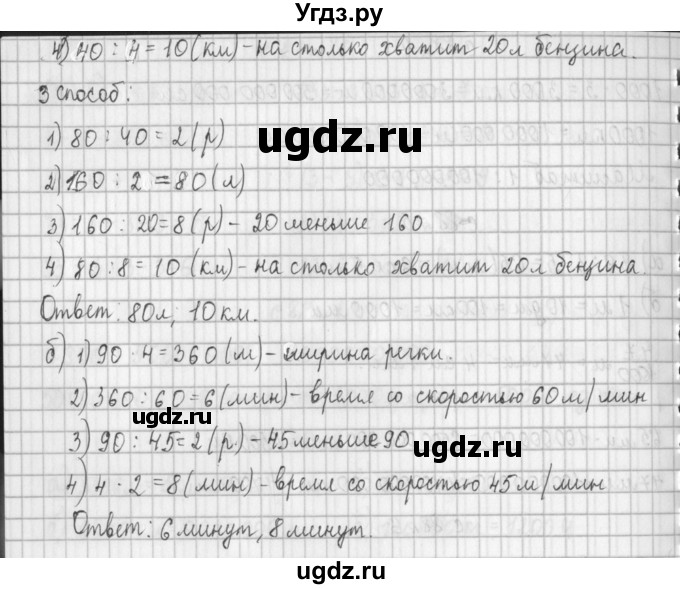 Угдз.ру
4) 40 : 4 = 10 (км) - на столько хватит 20л бензина.
3 способ:
1) 80 : 40 = 2 (р)
ugdz.ru
2) 160 : 2 = 80 (л)
3) 160 : 20 = 8 (р) - 20 меньше 160
4) 80 : 8 = 10 (км) - на столько хватит 20л бензина.
Ответ: 80л; 10 км.
б) 1) 90 · 4 = 360 (м) - ширина речки.
2) 360 : 60 = 6 (мин) - время со скоростью 60 м/мин
ugdz.ru
3) 90 : 45 = 2 (р.) - 45 меньше 90
ugdz.ru
4) 4 · 2 = 8 (мин) - время со скоростью 45 м/мин
Ответ: 6 минут, 8 минут.
ugdz.ru
ugdz.ru